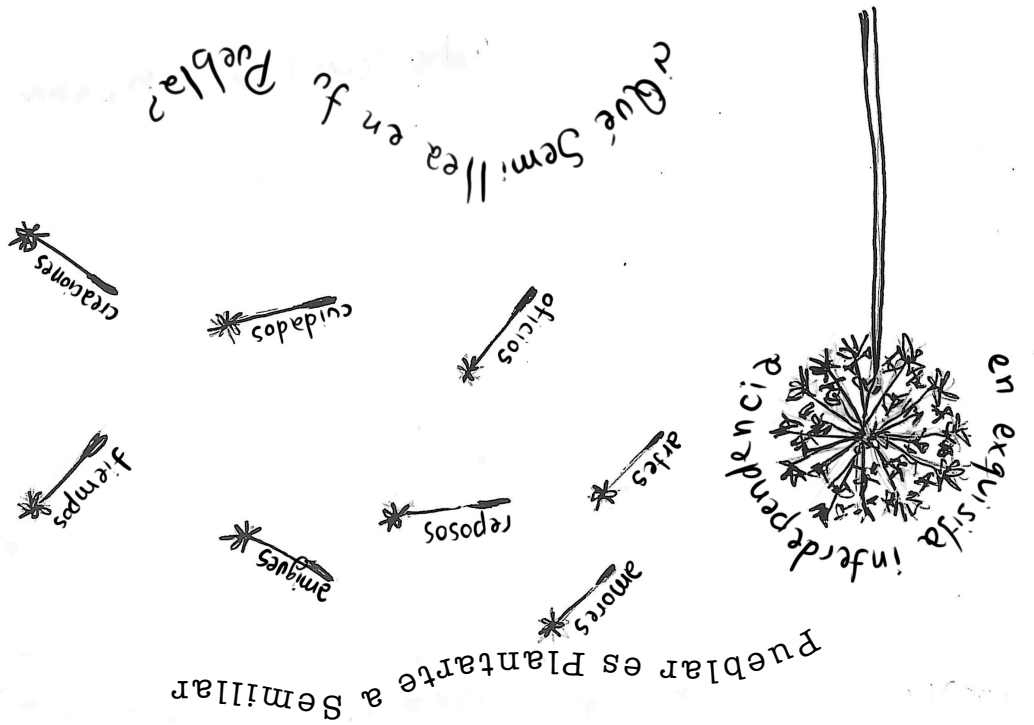 Pueblar es Plantarte a Semillar
en exquisita interdependencia
amores
artes
reposos
amigues
tiempos
oficios
cuidados
creaciones
¿Qué Semillea en tu Puebla?